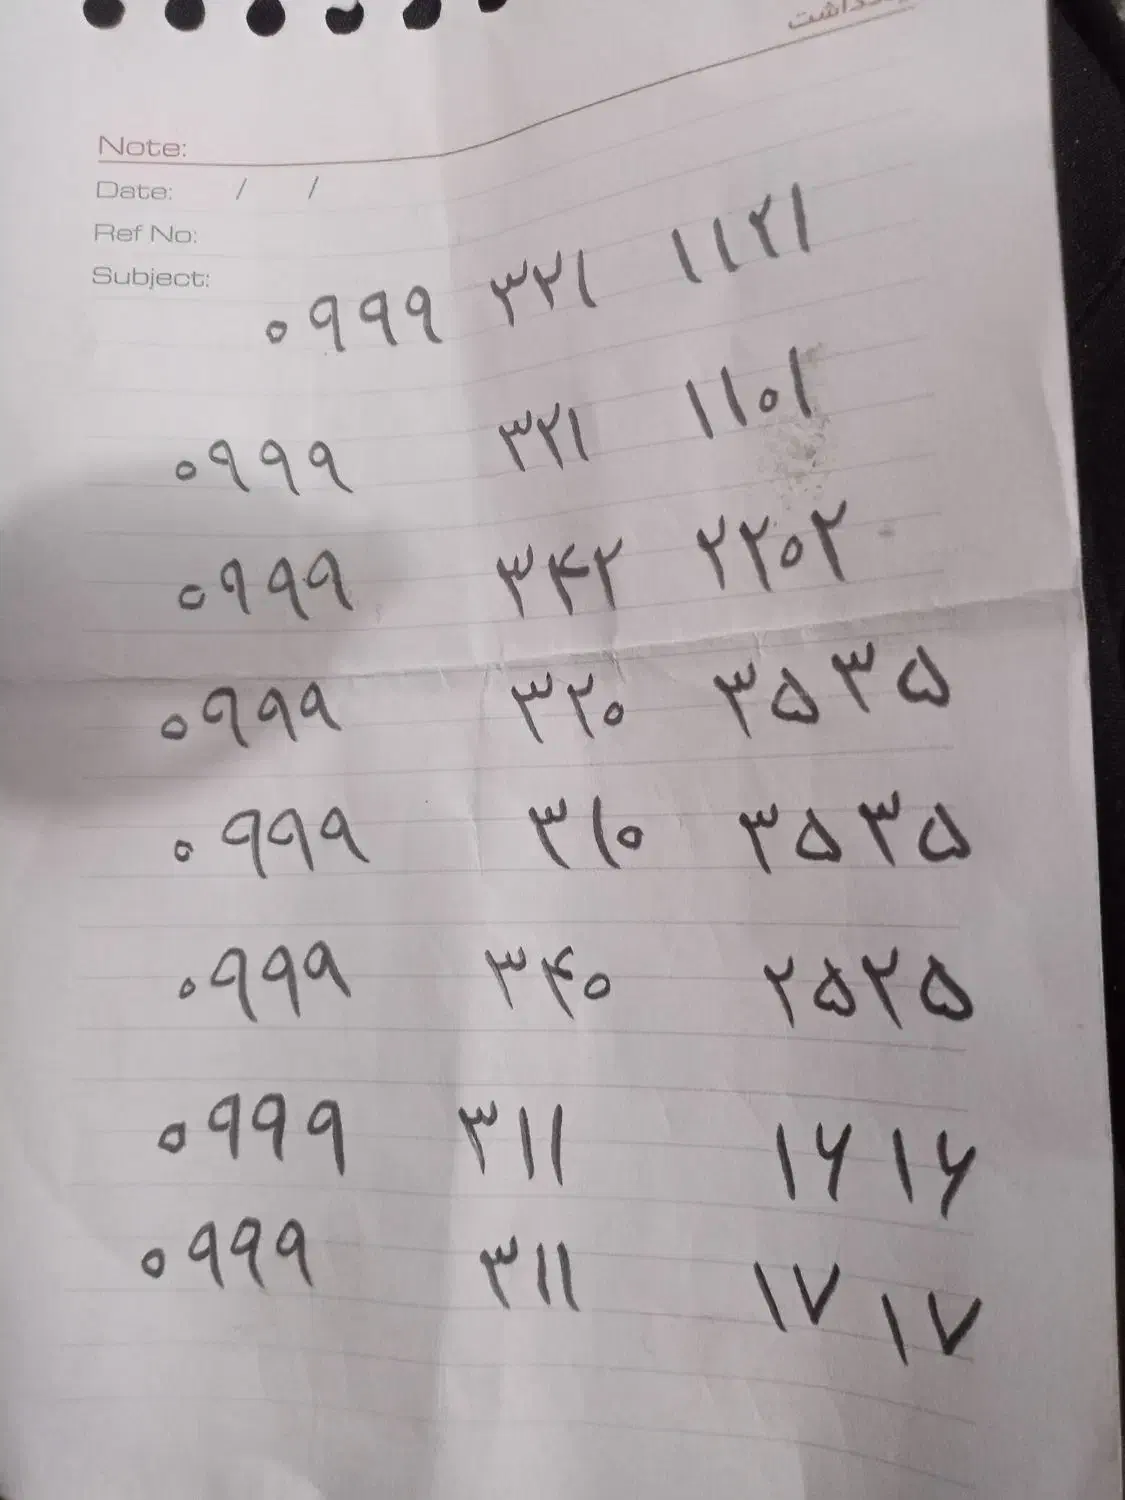 یادداشت
Note:
Date: / /
Ref No:
Subject:
۰۹۹۹ ۳۲۱ ۱۱۲۱
۰۹۹۹ ۳۲۱ ۱۱۰۱
۰۹۹۹ ۳۴۲ ۲۲۰۲
۰۹۹۹ ۳۲۰ ۳۵۳۵
۰۹۹۹ ۳۱۰ ۳۵۳۵
۰۹۹۹ ۳۴۰ ۲۵۲۵
۰۹۹۹ ۳۱۱ ۱۶۱۶
۰۹۹۹ ۳۱۱ ۱۷۱۷